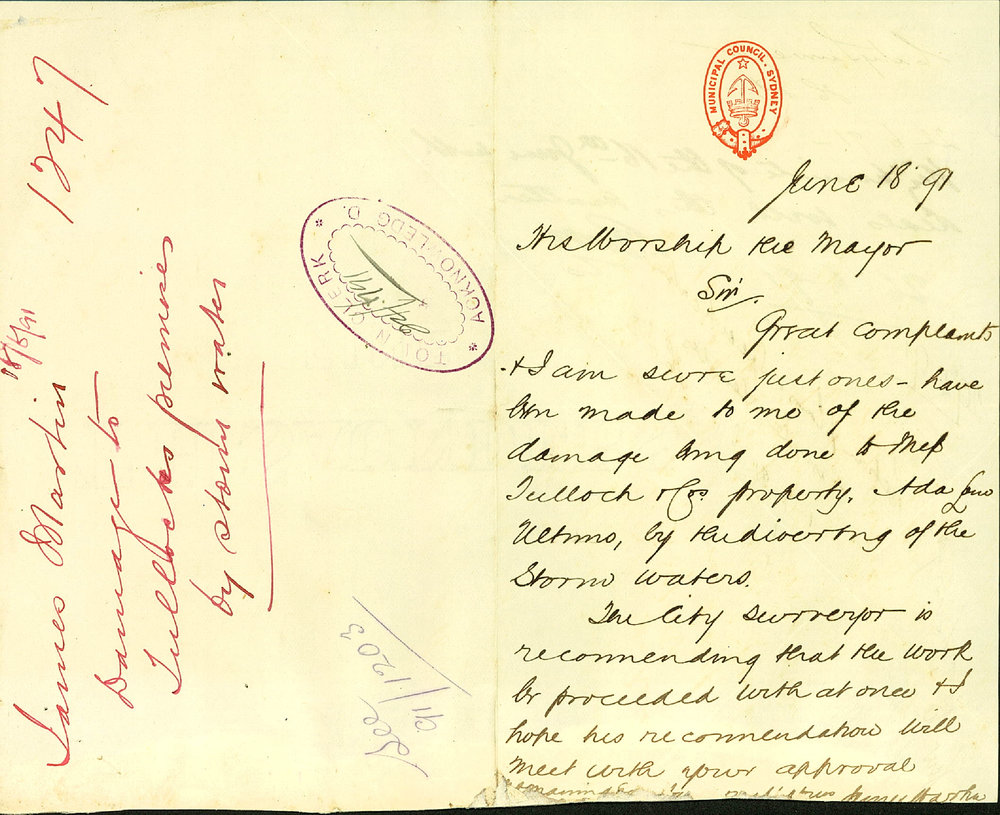 1247
18/6/91
James Martin
Damage to
Tullochs premises
by storm water
TOWN CLERK
ACKNOWLEDG'D.
See
91/1203
MUNICIPAL COUNCIL. SYDNEY
June 18 91
His Worship the Mayor
Sir,
Great complaints
& I am sure just ones - have
been made to me of the
damage being done to Mess
Tulloch & Cos property, Ada Lane
Ultimo, by the diverting of the
Storm waters.
The City Surveyor is
recommending that the work
be proceeded with at once & I
hope his recommendation will
meet with your approval
James Martin